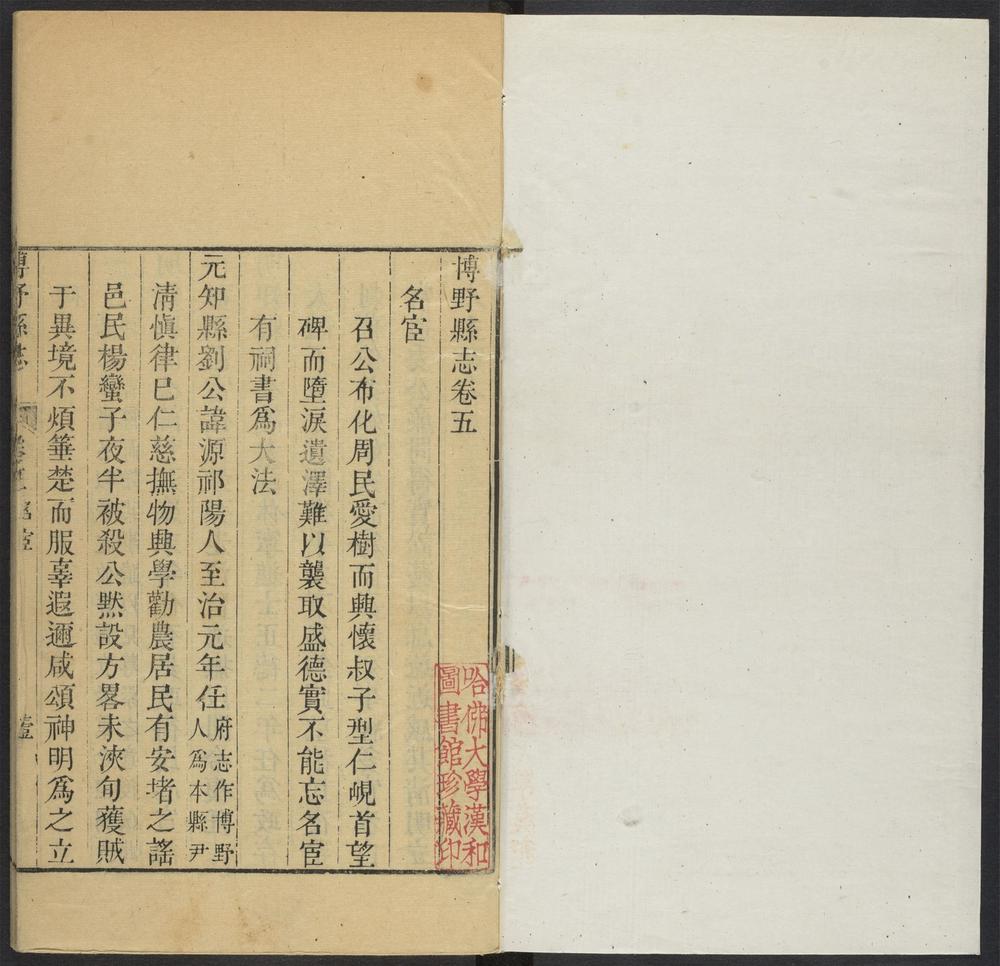 博野縣志卷五
名宦
召公布化周民愛樹而興懷叔子型仁峴首望
碑而墮淚遺澤難以襲取盛德實不能忘名宦
有祠書爲大法
元知縣劉公諱源祁陽人至治元年任府志作博野
人爲本縣尹
清慎律巳仁慈撫物興學勸農居民有安堵之謡
邑民楊蠻子夜半被殺公黙設方畧未浹旬獲賊
于異境不煩箠楚而服辜遐邇咸頌神明爲之立
博野縣志 卷五 名宦 壹
哈佛大學漢和
圖書館珍藏印